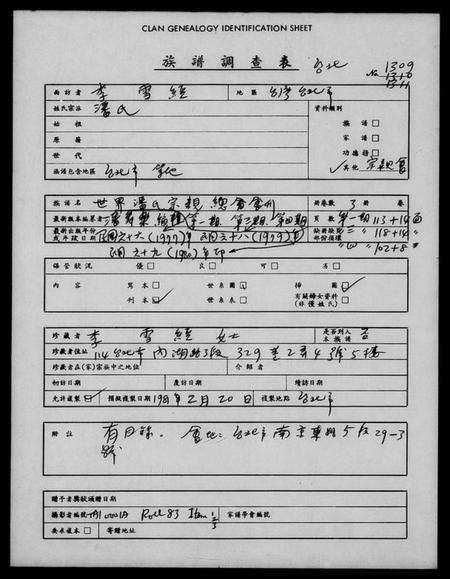 CLAN GENEALOGY IDENTIFICATION SHEET
族譜調查表 台北 No 1309
1310
1311
面訪者 李雪經 地區 台灣台北市
姓氏宗派 潘氏 資料類別
始祖 族譜 □
原籍 家譜 □
世代 功德榜 □
族譜包含地區 台北市 等地 其他 宗親會
族譜名 世界潘氏宗親總會會刊 卷冊數 3 冊 卷
最新版本編纂者 第一期 第三期 第四期 頁數 第一期 113+14面
最新出版年份或手稿日期 民國六十六(1977)年 民國六十八(1979)年 缺漏缺號部份損壞 〃三〃 118+14〃
民國六十九(1980)年印 〃四〃 102+8〃
保管狀況 優 □ 良 □ 可 □ 劣 □
內容 寫本 □ 世系圖 □ 插圖 □
刊本 □ 世系表 □ 有關婦女資料 □
(非僅姓氏)
珍藏者 李雪經 女士 是否列入本族譜 否
珍藏者住址 114 台北市內湖路3段329巷2弄4號5樓
珍藏者在(家)宗族中之地位 介紹者
初訪日期 度訪日期 續訪日期
允許複製 □ 預擬複製日期 1981年2月20日 複製地點 台北市
附註 有目錄. 會址: 台北市南京東路5段29-3
號
贈予者獎狀頒贈日期
攝影者編號 Roll 83 Item 家譜學會編號
要求複本 □ 寄贈地址